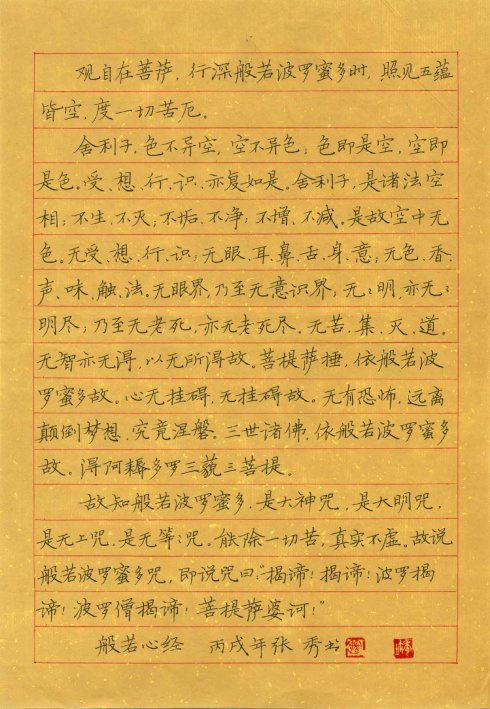 观自在菩萨，行深般若波罗蜜多时，照见五蕴
皆空，度一切苦厄。
舍利子，色不异空，空不异色；色即是空，空即
是色。受、想、行、识、亦复如是。舍利子，是诸法空
相：不生、不灭；不垢、不净；不增、不减。是故空中无
色。无受、想、行、识；无眼、耳、鼻、舌、身、意；无色、香、
声、味、触、法。无眼界，乃至无意识界；无：明，亦无：
明尽；乃至无老死，亦无老死尽。无苦、集、灭、道。
无智亦无得，以无所得故。菩提萨埵，依般若波
罗蜜多故。心无挂碍，无挂碍故。无有恐怖，远离
颠倒梦想、究竟涅磐。三世诸佛，依般若波罗蜜多
故。得阿耨多罗三藐三菩提。
故知般若波罗蜜多，是大神咒，是大明咒，
是无上咒，是无等：咒。能除一切苦，真实不虚。故说
般若波罗蜜多咒，即说咒曰：“揭谛！揭谛！波罗揭
谛！波罗僧揭谛！菩提萨婆诃！”
般若心经 丙戌年张秀书